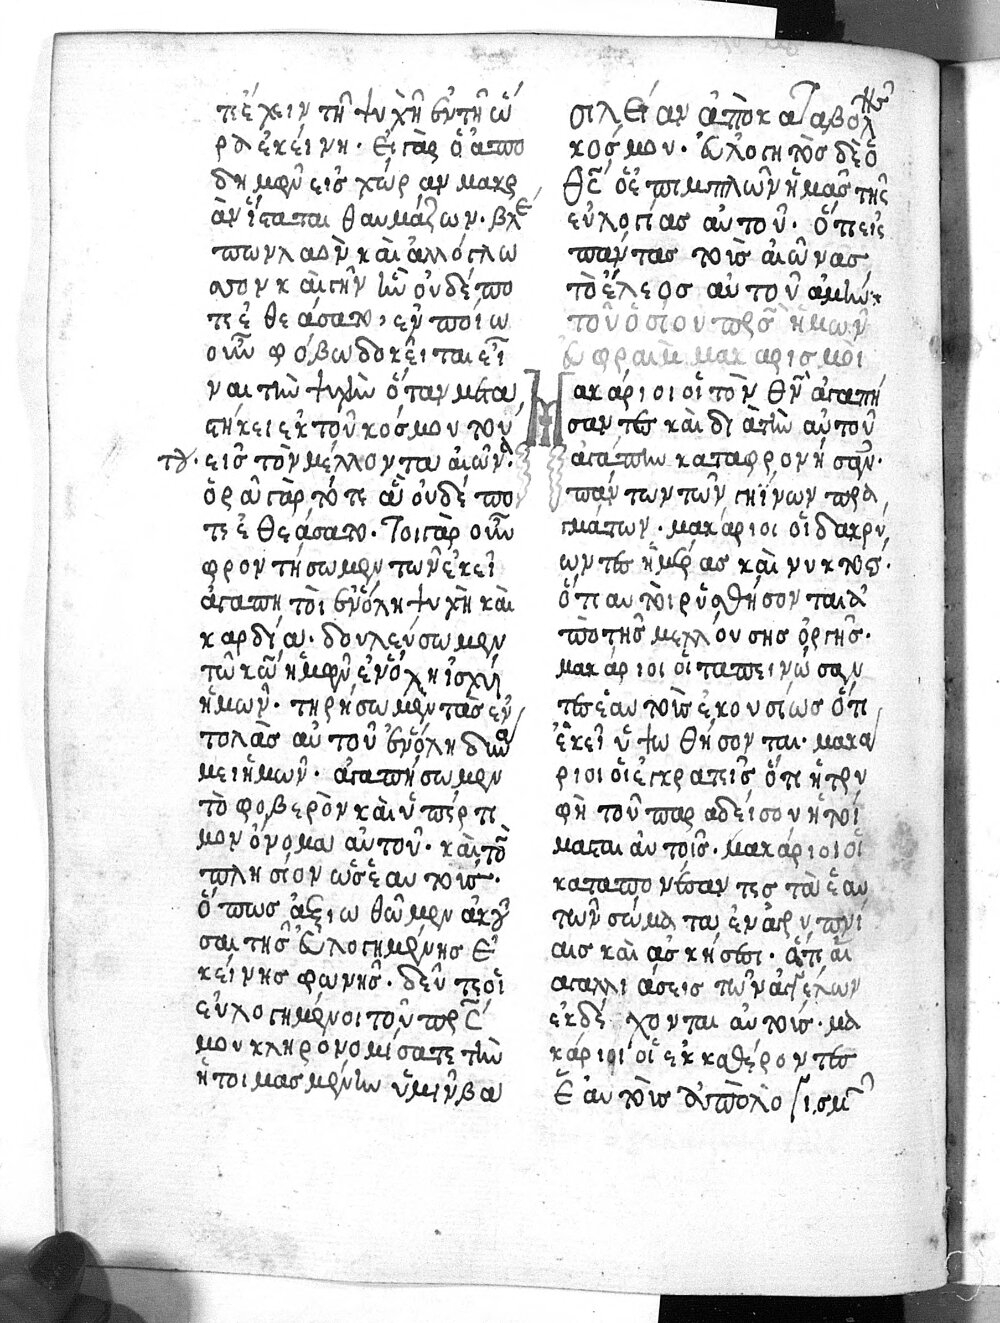 πέχειν τῆ ψυχῆ ἐν τῆ ὥ
ρα ἐκείνη· εἰ γὰρ ὁ ἀπο
δημῶν εἰς χώραν μακρ
ὰν ἵσταται θαυμάζων· βλέ
πων λαὸν καὶ ἀλλόγλω
σσον καὶ γῆν ἣν οὐδέπο
τε ἐθεάσατο, ἐν ποίω
οὖν φόβω δοκεῖται εἶ
ναι τὴν ψυχὴν ὅταν μετα
στήκει ἐκ τοῦ κόσμου τού
του· εἰς τὸν μέλλοντα αἰῶνα·
ὁρᾶ γὰρ τότε ἃ οὐδέπο
τε ἐθεάσατο· Τοιγὰρ οὖν
φροντήσωμεν τῶν ἐκεῖ
ἀγαπητοὶ ἐν ὅλη ψυχῆ καὶ
καρδία· δουλεύσωμεν
τῶ κῶ ἡμῶν ἐν ὅλη ἰσχύι
ἡμῶν· τηρήσωμεν τὰς ἐν
τολὰς αὐτοῦ ἐν ὅλη δυνά
μει ἡμῶν· ἀγαπήσωμεν
τὸ φοβερὸν καὶ ὑπέρτι
μον ὄνομα αὐτοῦ· καὶ τὸν
πλησίον ὡς ἑαυτούς·
ὅπως ἀξιωθῶμεν ἀκοῦ
σαι τῆς εὐλογημένης ἐ
κείνης φωνῆς· δεῦτε οἱ
εὐλογημένοι τοῦ πρς
μου κληρονομίσατε τὴν
ἡτοιμασμένην ὑμῖν βα
σιλείαν ἀπὸ καταβολῆς
κόσμου· Εὐλογητὸς δὲ ὁ
θς ὁ ἐμπιπλῶν ἡμᾶς τῆς
εὐλογίας αὐτοῦ· ὅτι εἰς
πάντας τοὺς αἰῶνας
τὸ ἔλεος αὐτοῦ ἀμήν
τοῦ ὁσίου πρς ἡμῶν
Ἐφραὶμ μακαρισμοὶ
Μακάριοι οἱ τὸν θν ἀγαπή
σαντες καὶ δι ἀγάπην αὐτοῦ
ἀγάπην καταφρονήσαν·
πάντων τῶν γηΐνων πρα
γμάτων· μακάριοι οἱ δακρύ
ωντες ἡμέρας καὶ νυκτός·
ὅτι αὐτοὶ ῥυσθήσονται ἀ
πὸ τῆς μελλούσης ὀργῆς·
μακάριοι οἱ ταπεινώσαν
τες ἑαυτοὺς ἑκουσίως ὅτι
ἐκεῖ ὑψωθήσονται· μακά
ριοι οἱ ἐγκρατεῖς ὅτι ἡ τρυ
φὴ τοῦ παραδείσου ἡτοί
μασται αὐτοῖς· μακάριοι οἱ
καταπονίσαντες τὰ ἑαυ
τῶν σώματα ἐν ἀγρυπνί
αις καὶ ἀσκήσεσι· ὅτι αἱ
ἀγαλλιάσεις τῶν ἀγγέλων
ἐκδέχονται αὐτούς· μα
κάριοι οἱ ἐκκαθέροντες
ἑαυτοὺς ἀπὸ λογισμ